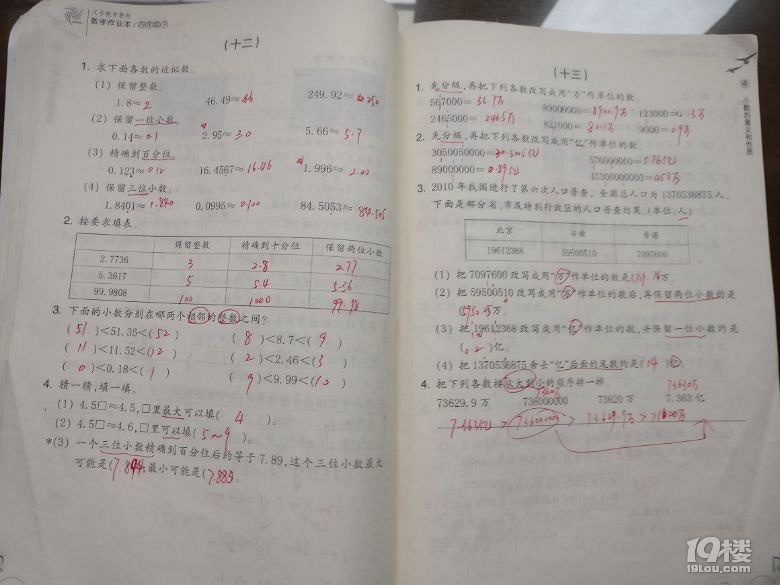 义务教育教材
数学作业本
(十二)
1. 求下面各数的近似数。
(1) 保留整数。
1.8≈2 46.49≈46 249.92≈250
(2) 保留一位小数。
0.14≈0.1 2.95≈3.0 5.66≈5.7
(3) 精确到百分位。
0.123≈0.12 16.4567≈16.46 1.996≈2.00
(4) 保留三位小数。
1.8401≈1.840 0.0995≈0.100 84.5053≈84.505
2. 按要求填表。
保留整数 精确到十分位 保留两位小数
2.7736 3 2.8 2.77
5.3617 5 5.4 5.36
99.9808 100 100.0 99.98
3. 下面的小数分别在哪两个相邻的整数之间?
(51)<51.35<(52) (8)<8.7<(9)
(11)<11.52<(12) (2)<2.46<(3)
(0)<0.18<(1) (9)<9.99<(10)
4. 猜一猜,填一填。
(1) 4.5□≈4.5,□里最大可以填(4)。
(2) 4.5□≈4.6,□里可以填(5~9)。
*(3) 一个三位小数精确到百分位后约等于7.89,这个三位小数最大
可能是(7.894),最小可能是(7.885)。
(十三)
1. 先分级,再把下列各数改写成用“万”作单位的数。
567000=56.7万 89009000=8900.9万 123000=12.3万
2465000=246.5万 821000=82.1万 9000=0.9万
2. 先分级,再把下列各数改写成用“亿”作单位的数。
3050050000=30.5005亿 576000000=5.76亿
89000000=0.89亿 45300000000=453亿
3. 2010年我国进行了第六次人口普查,全国总人口为1370536875人。
下面是部分省、市及特别行政区的人口普查结果。(单位:人)
北京 安徽 香港
19612368 59500510 7097600
(1) 把7097600改写成用“万”作单位的数是(709.76)万。
(2) 把59500510改写成用“万”作单位的数后,再保留两位小数约是
(5950.05)万。
(3) 把19612368改写成用“亿”作单位的数,并保留一位小数约是
(0.2)亿。
(4) 把1370536875舍去“亿”后面的尾数约是(14)亿。
4. 把下列各数按从大到小的顺序排一排。
73600万 73630万
73629.9万 736000000 73620万 7.363亿
7.363亿 > 736000000 > 73629.9万 > 73620万
4 小数的意义和性质
19楼
19lou.com